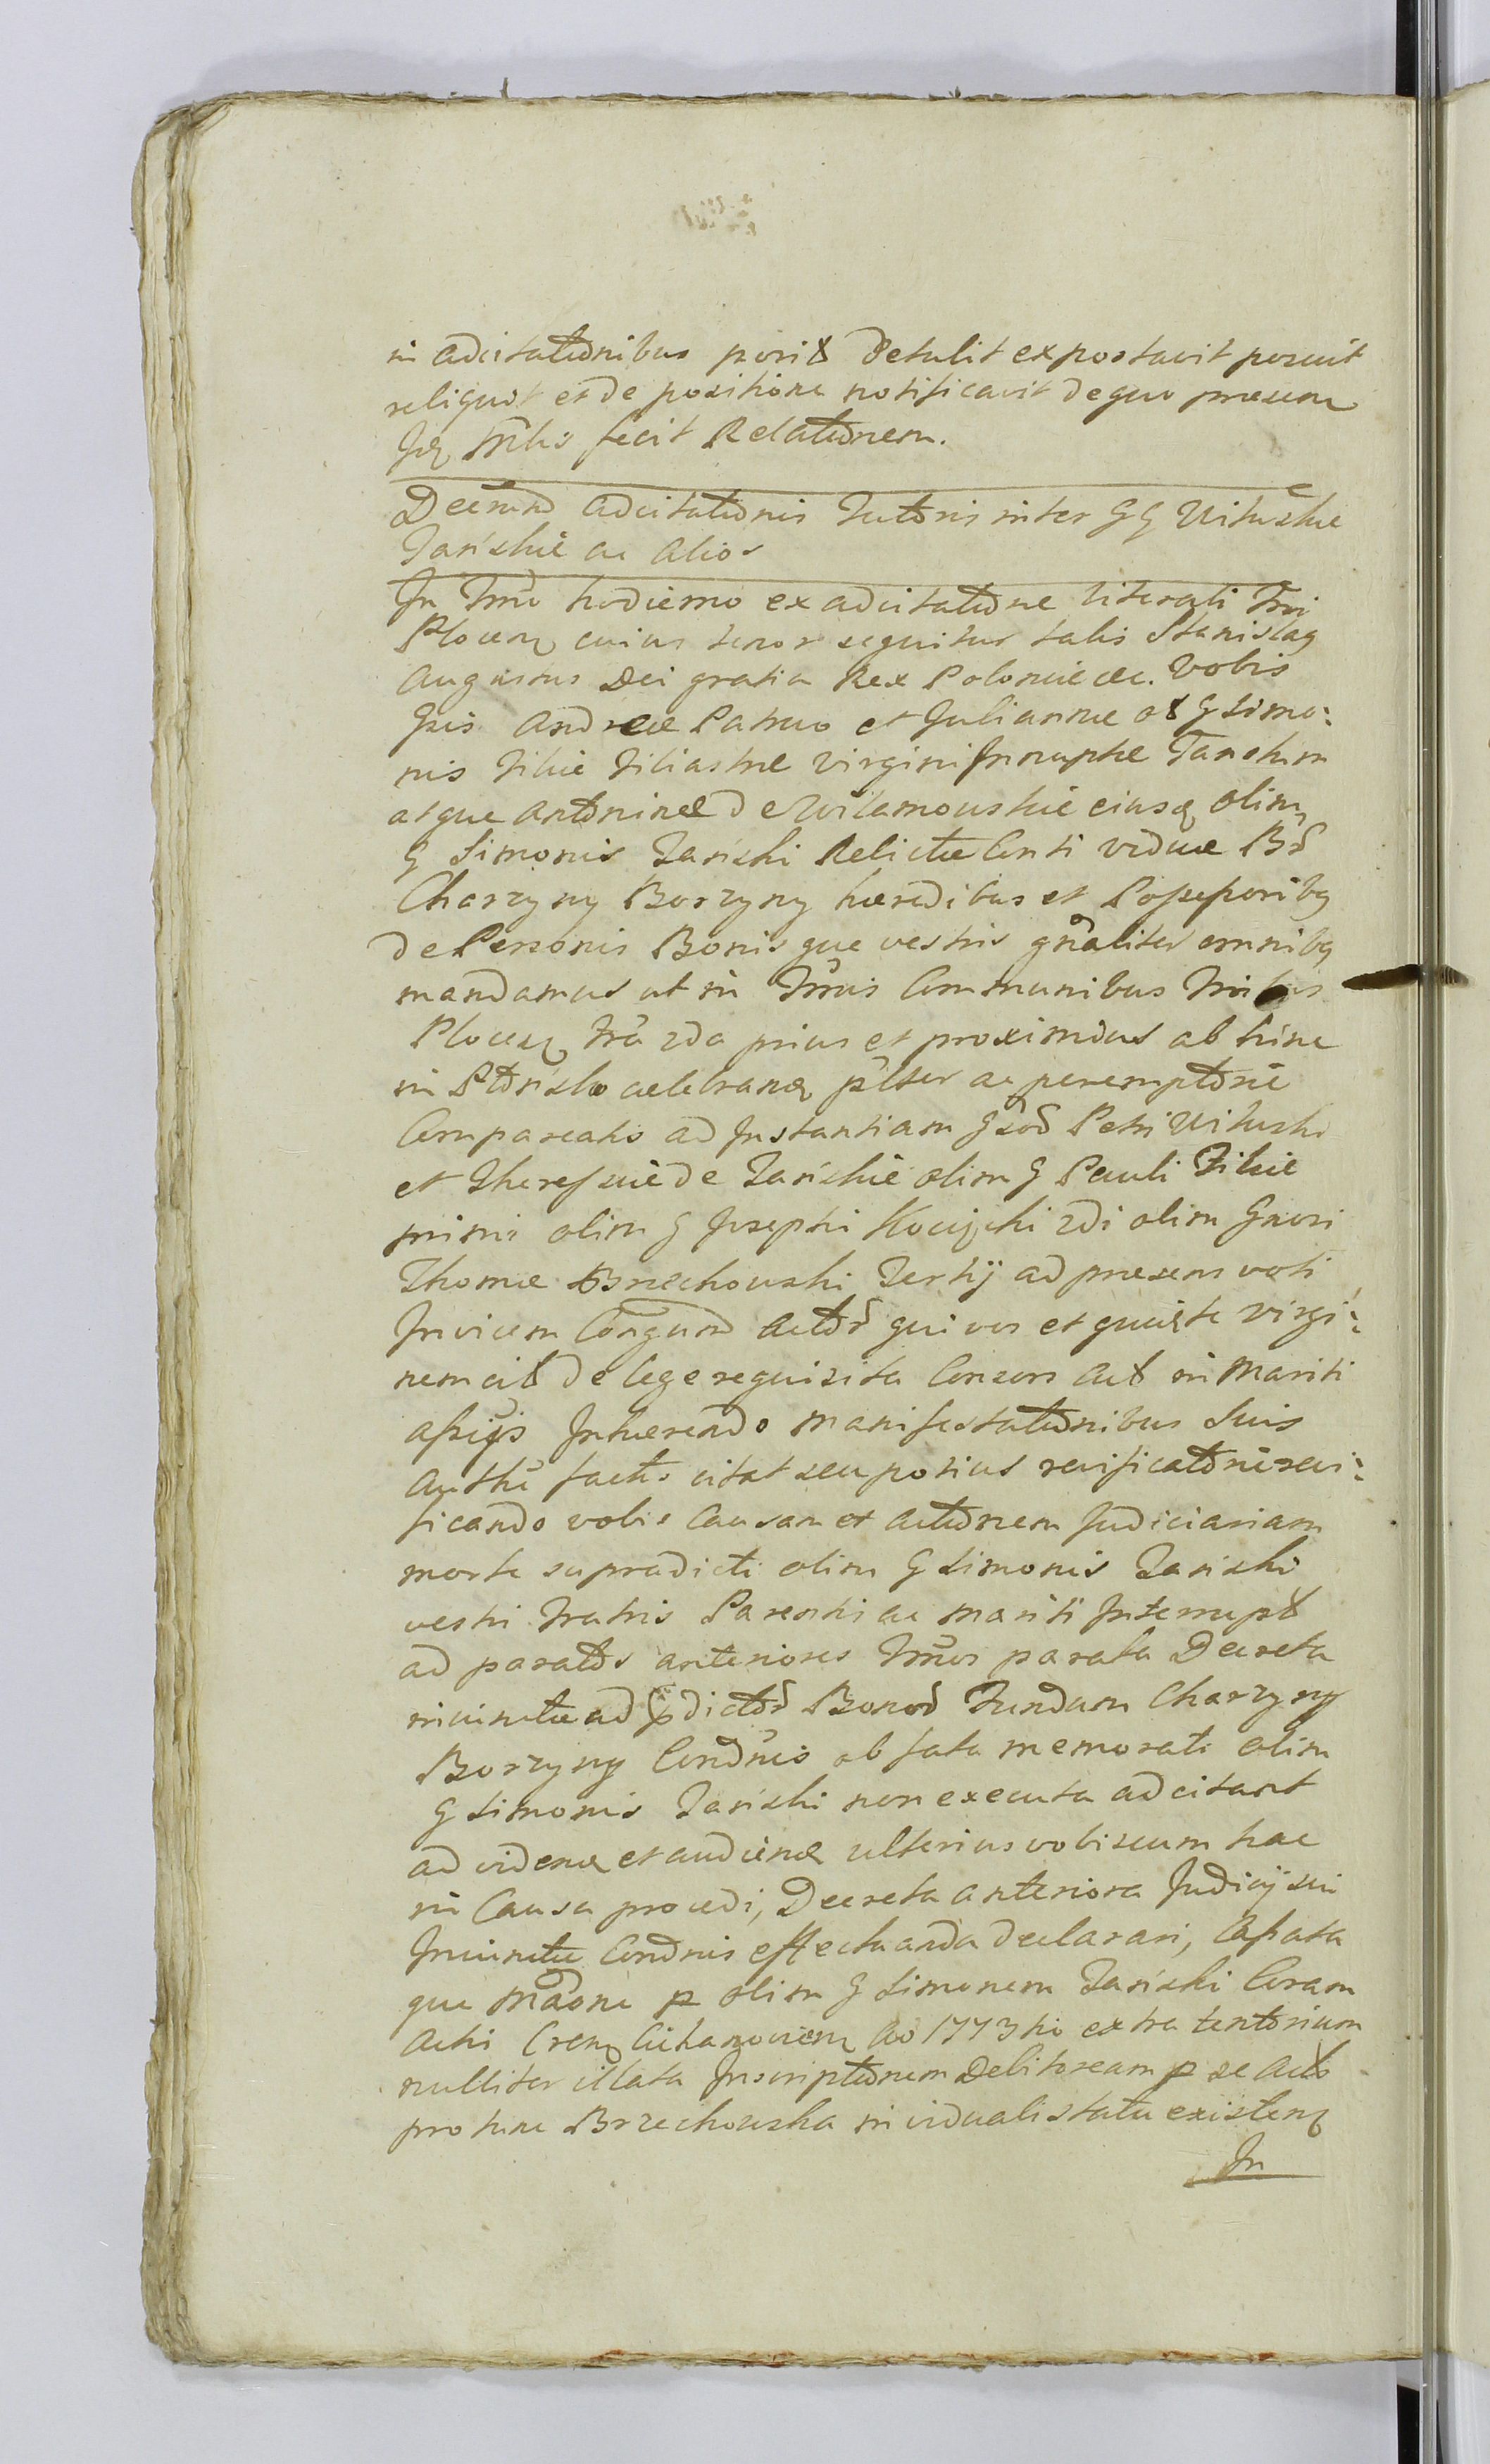 in adcitationibus posit detulit exportavit posuit
reliquit et de positione notificavit de quo praesens
Jdq Mlis fecit Relationem.
Decretum adcitationis Tutoris inter GG Vituskie
Tański ac alios
In Tmo hodierno ex adcitatione literali Tri
Plocen cuius tenor sequitur talis Stanislaq
Augustus Dei gratia Rex Poloniae &c. Vobis
Gsis Andreae Patruo et Juliannae ol G Simo:
nis Filiae Filiastrae Virgini Innuptae Tanskim
atque Antoninae de Wilamowskie eiusq olim
G Simonis Tański Relictae Conti viduae Bd
Charzyny Borzyny haeredibus et Possessoribq
de Personis Bonisque vestris gnaliter omnibq
mandamus ut in Tmis Communibus Tribus
Plocen fra 2da prius et proximius ab hinc
in Płońsko celebran pltter ac peremptorie
Compareatis ad Instantiam Gsod Petri Vituski
et Theressiae de Tańskie olim G Pauli Filiae
primi olim G Josephi Kocięcki 2di olim Gnosi
Thomae Brzechowski Tertij ad praesens voti
Invicem Congund Actor qui vos et quiete virgi:
nem cit de lege requisita Consors aut in Mariti
assijs Inhaerendo manifestationibus Suis
Authe factis citat seu potius reificatorie rei:
ficando vobis Causam et actionem Judiciariam
morte supradicti olim G Simonis Tański
vestri Fratris Parentis ac mariti Interrupt
ad paratos anteriores Tmos parata Decreta
in dictor Bonod Fundum Charzyny
Borzyny Condnis ob fata memorati olim
G Simonis Tański non executa adcitant
ad viden et audien ulterius vobiscum hac
in Causa procedi, Decreta anteriora Judicij sui
Condnis effectuanda declarari, Cassata
que maone p olim G Simonem Tański Coram
Actis Cren Cichanovien Ao 1773tio extra tentorium
nulliter illata Inscriptionem Debitoream p se act
pro tunc Brzechowska in viduali statu existen
In